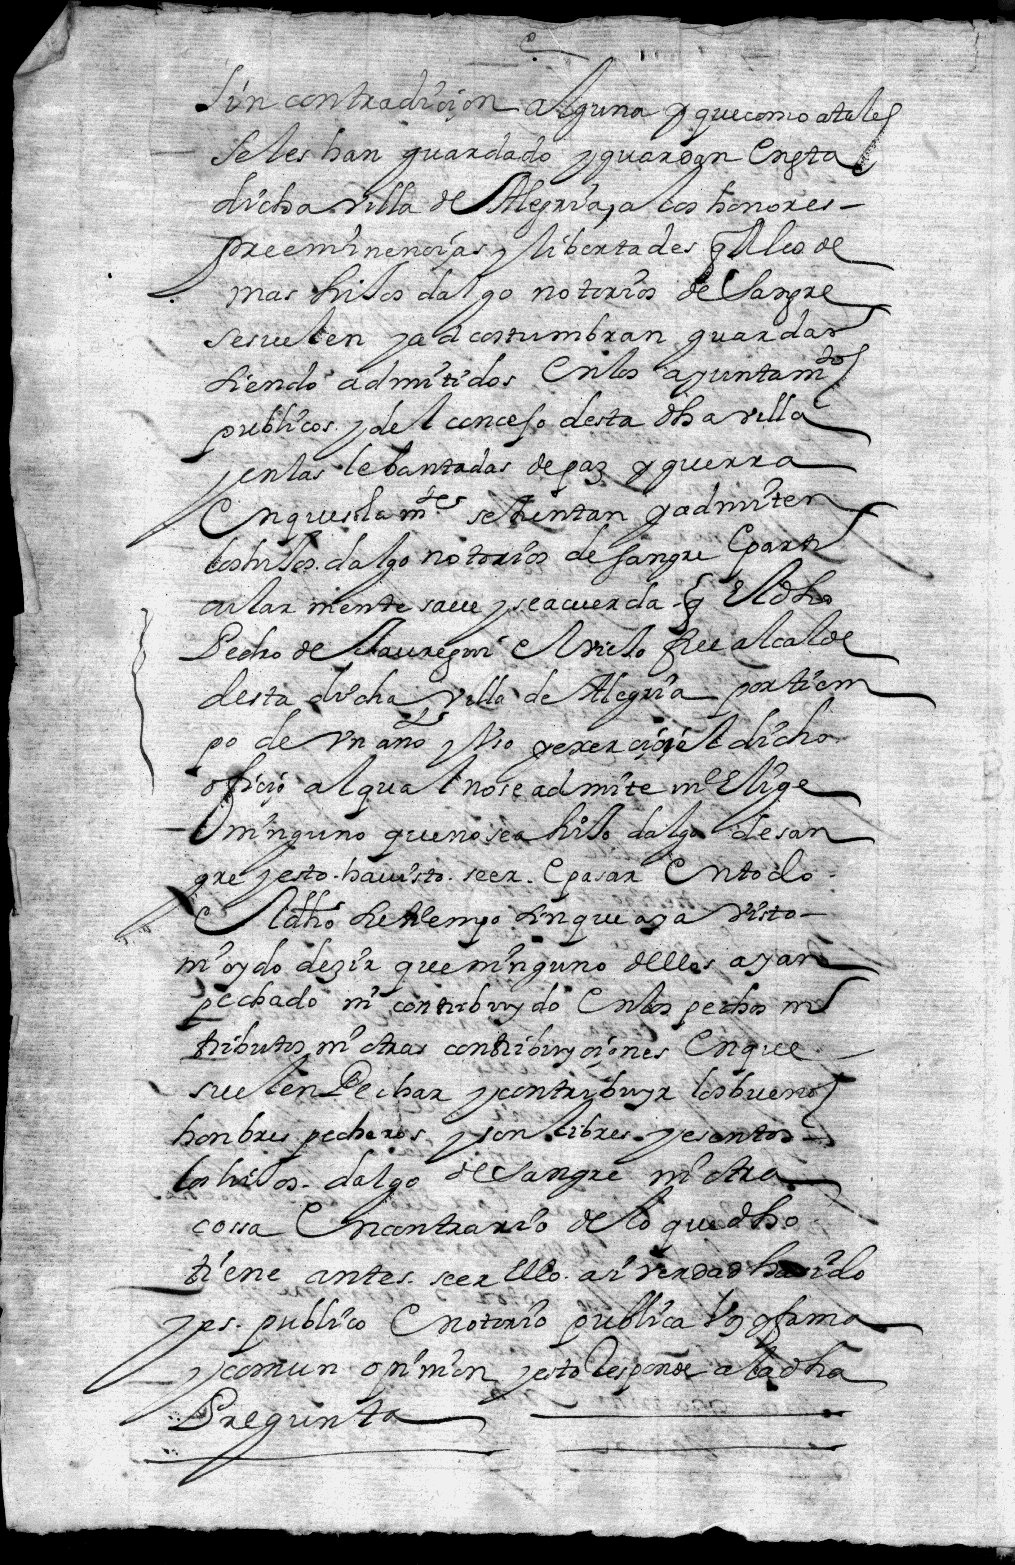 sin contradiçion alguna y que como a tales
se les han guardado y guardan en esta
dicha villa de Alegria, a los honores
preeminençias y libertades q̃ a los de
mas hijos dalgo notorios de sangre
se suelen y acostumbran guardar
siendo admitidos en los ayuntam^tos
publicos y del concejo desta dha villa
y en las lebantadas de paz y guerra
en que sola m^te se sientan y admiten
los hijos dalgo notorios de sangre e parti
cular mente save y se acuerda q̃ el dho
Pedro de Jauregui el viejo fue alcalde
desta dicha villa de Alegria por tiem
po de un año y uso y exerçio el dicho
ofiçio al qual no se admite ni elige
ninguno que no sea hijo dalgo de san
gre y esto ha visto seer e pasar en todo
el dho su tiempo sin que aya visto
ni oydo dezir que ninguno dellos ayan
pechado ni contribuydo en los pechos ni
tributos ni otras contribuyçiones en que
suelen Pechar y contribuyr los buenos
honbres pecheros y son libres y esentos
los hijos dalgo de sangre ni otra
cossa en contrario de lo que dho
tiene antes seer ello asi verdad ha sido
y es publico e notorio publica voz y fama
y comun opinion y esto responde a la dha
Pregunta